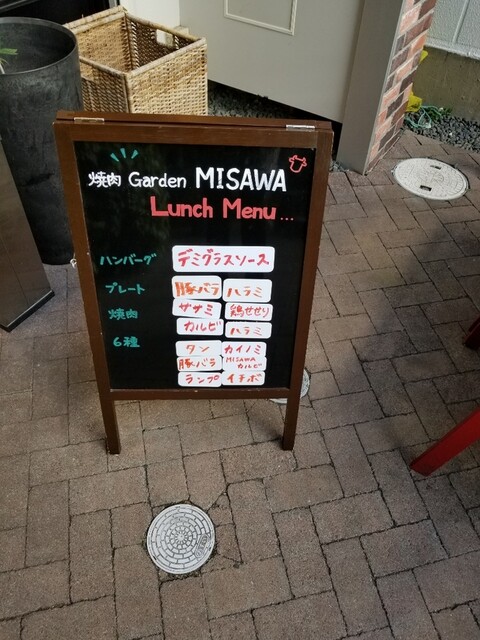 焼肉 Garden MISAWA
Lunch Menu...
ハンバーグ デミグラスソース
プレート 豚バラ ハラミ
焼肉 ササミ 鶏せせり
カルビ ハラミ
6種 タン カイノミ
豚バラ MISAWAカルビ
ランプ イチボ